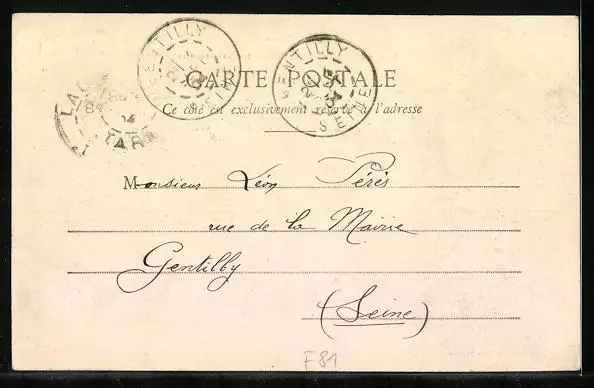 GENTILLY
GENTILLY
SEINE
CARTE POSTALE
Ce côté est exclusivement réservé à l'adresse
TARN
Monsieur Léon Pérès
rue de la Mairie
Gentilly
(Seine)
F81